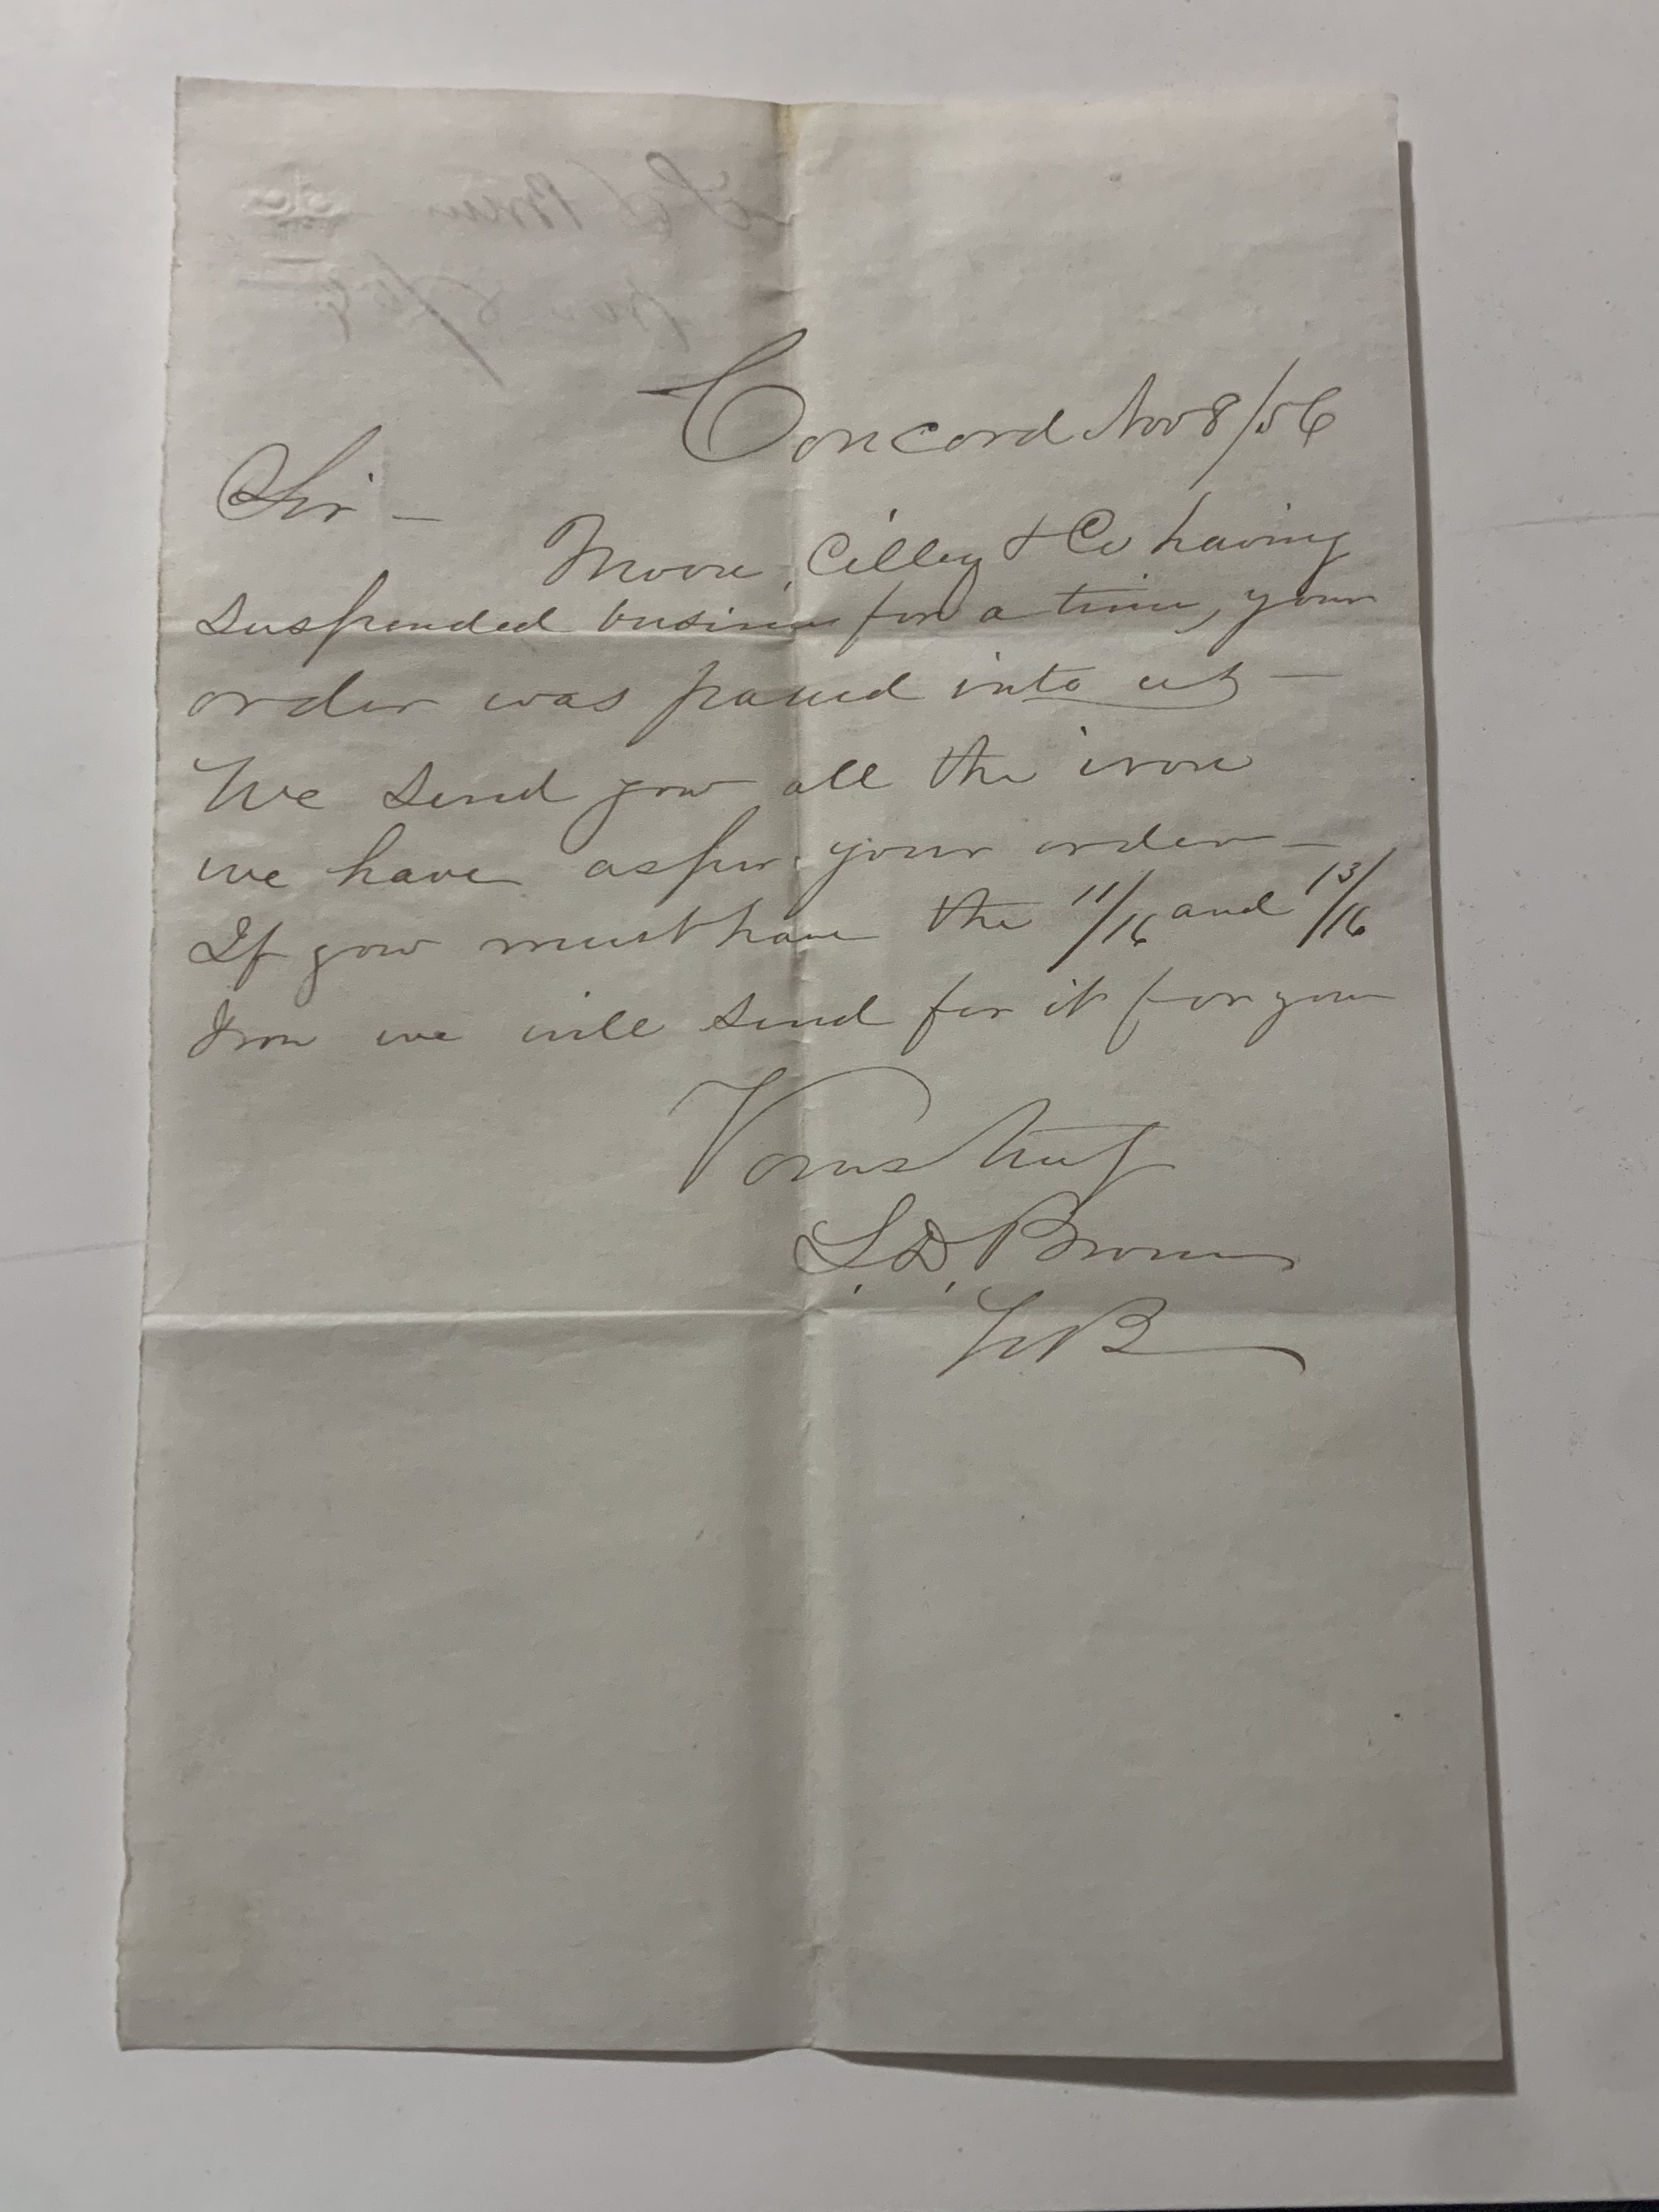 Concord Nov 8/56
Sir —
Moore, Cilley & Co having
suspended business for a time, your
order was passed into us —
We send you all the iron
we have as per your order —
If you must have the 11/16 and 13/16
Iron we will send for it for you
Yours truly
S. D. Brown